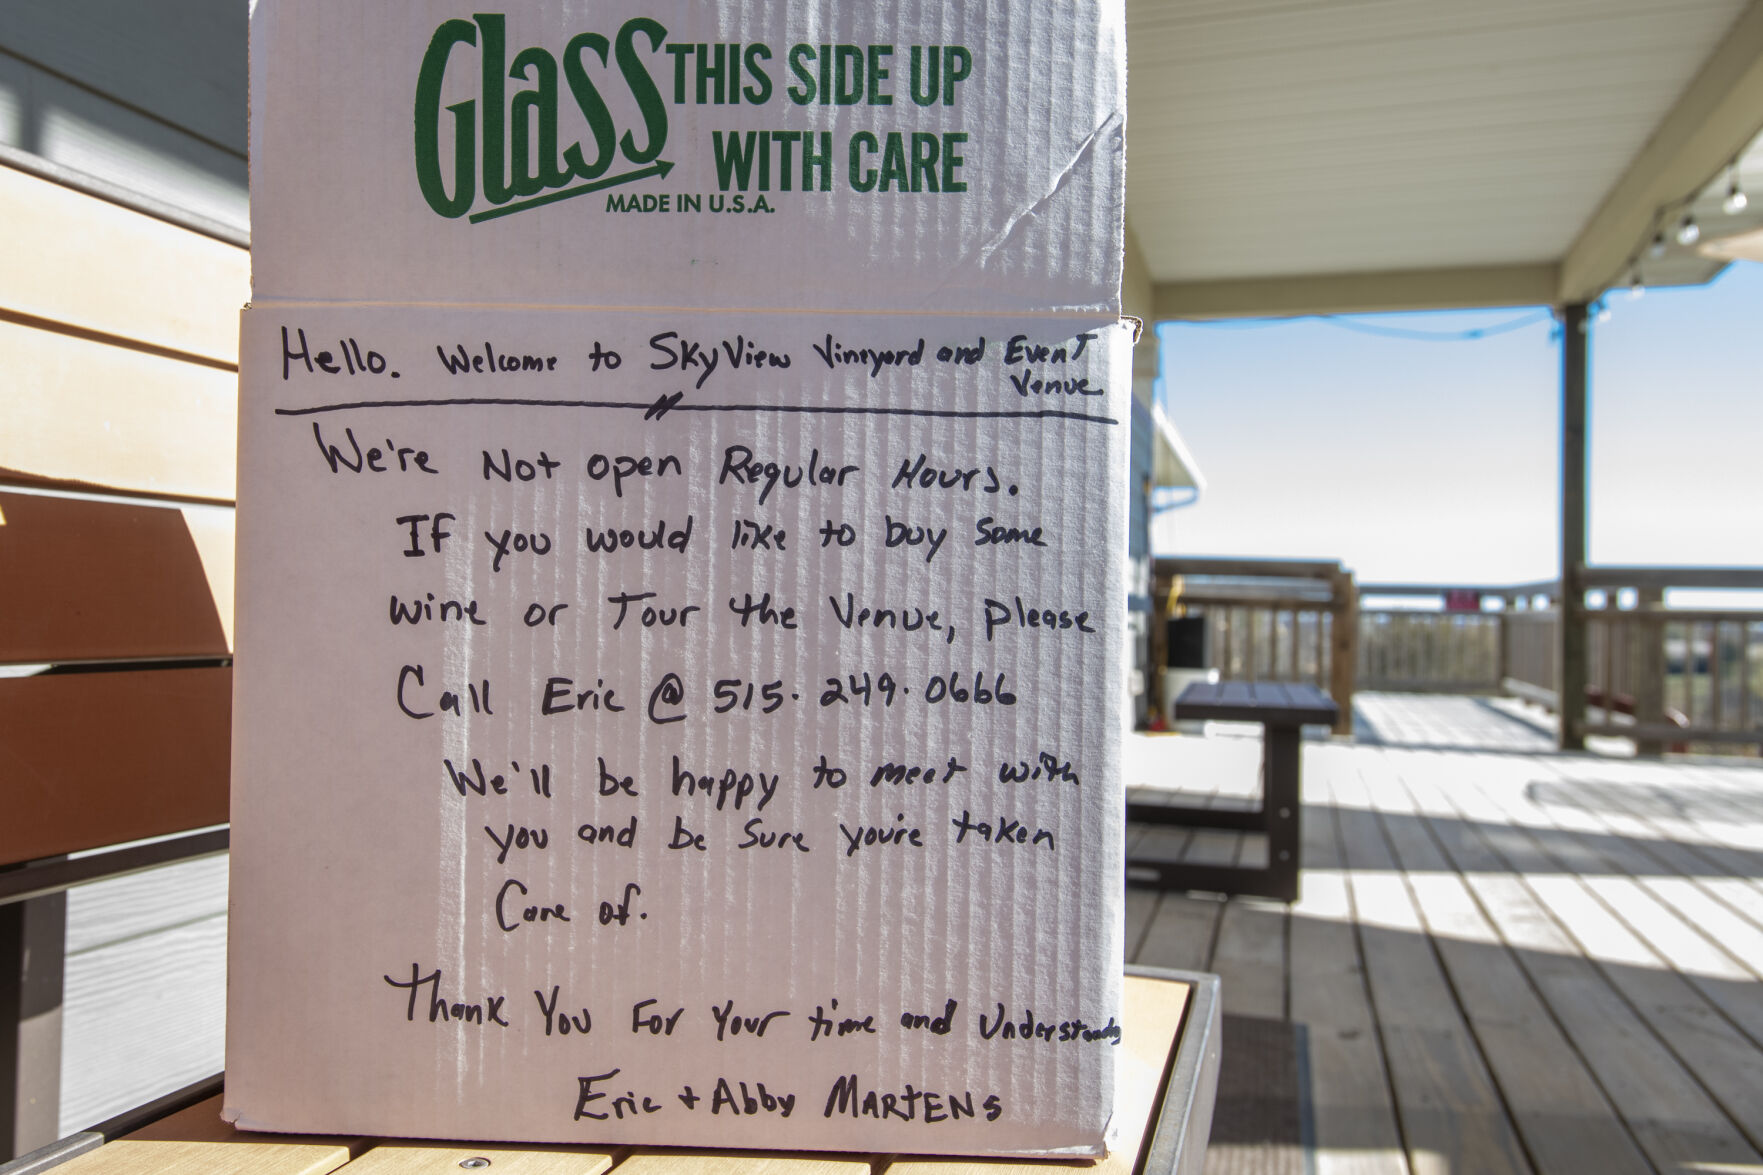 Glass THIS SIDE UP
WITH CARE
MADE IN U.S.A.
Hello. Welcome to SkyView Vineyard and Event
Venue
We're Not open Regular Hours.
If you would like to buy some
wine or Tour the Venue, please
Call Eric @ 515.249.0666
We'll be happy to meet with
you and be sure you're taken
Care of.
Thank You For Your time and Understanding
Eric + Abby MARTENS